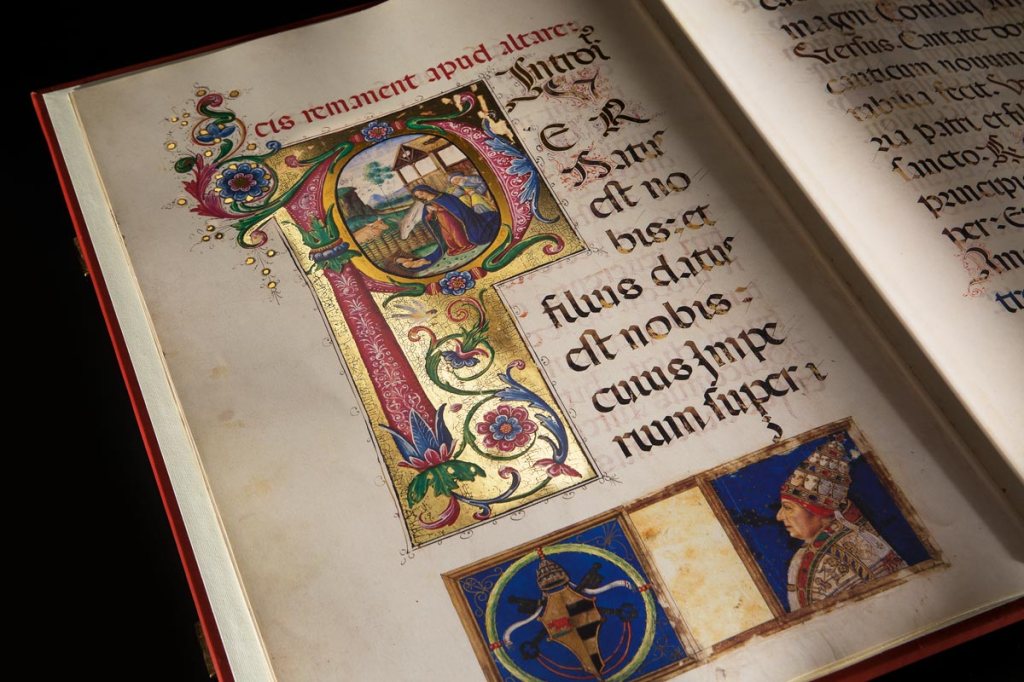 cis remanent apud altare:
Introi
PER
Natus
est no
bis: et
filius datus
est nobis:
cuius Impe
rium super
magni Consilii
Versus. Cantate do
canticum nouum
rabilia fecit.
ria patri et fi
sancto:
principi
per: